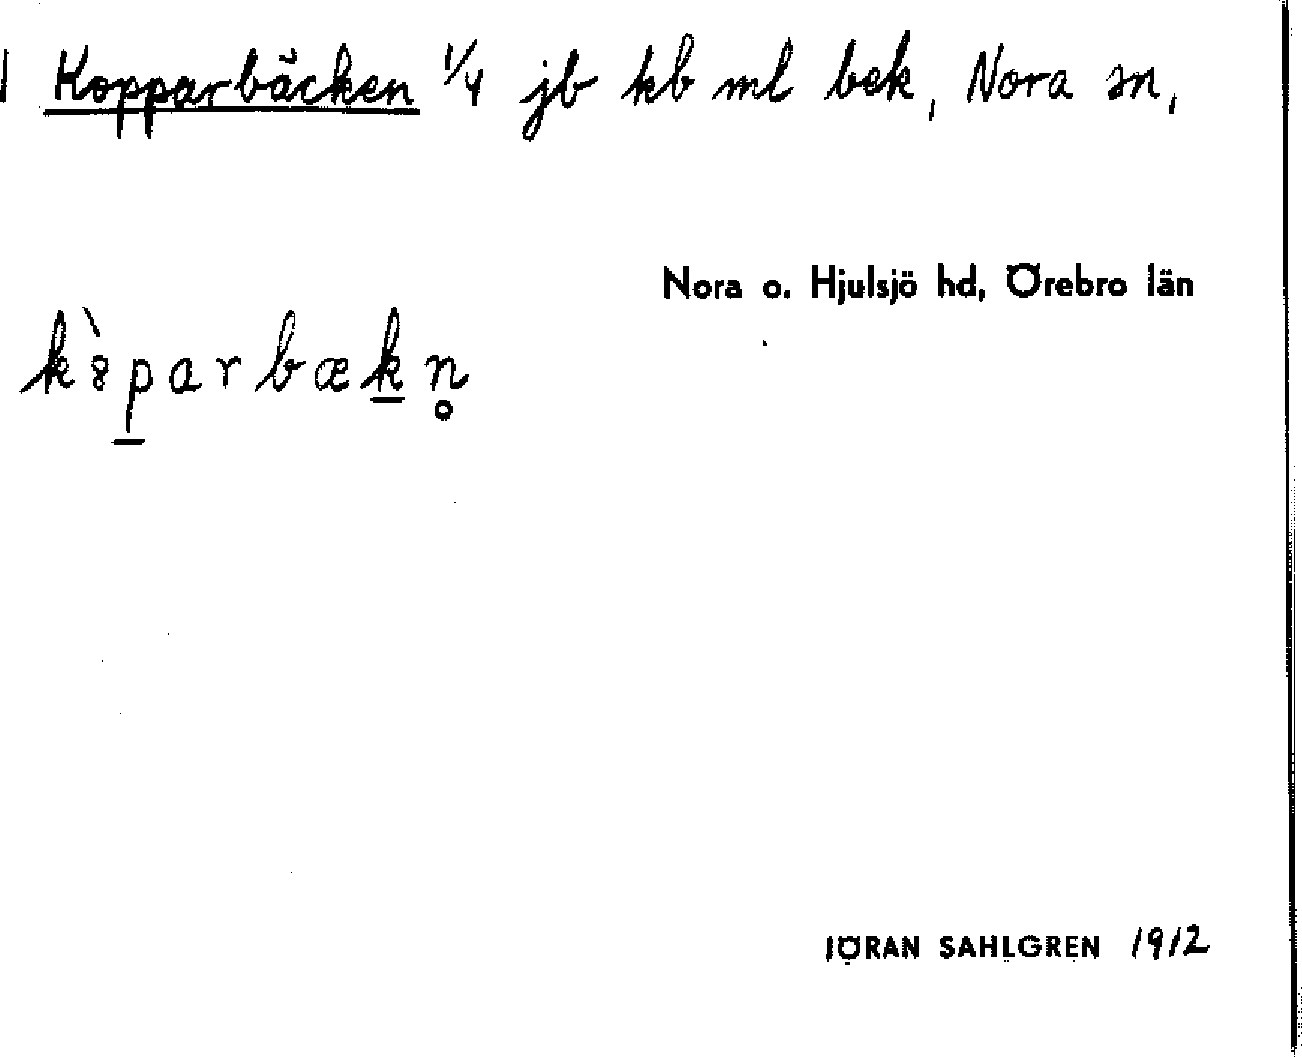 Kopparbäcken 1/4 jb kb ml bek, Nora sn,
Nora o. Hjulsjö hd, Örebro län
k8̀p̲arbæk̲n̥
JÖRAN SAHLGREN 1912